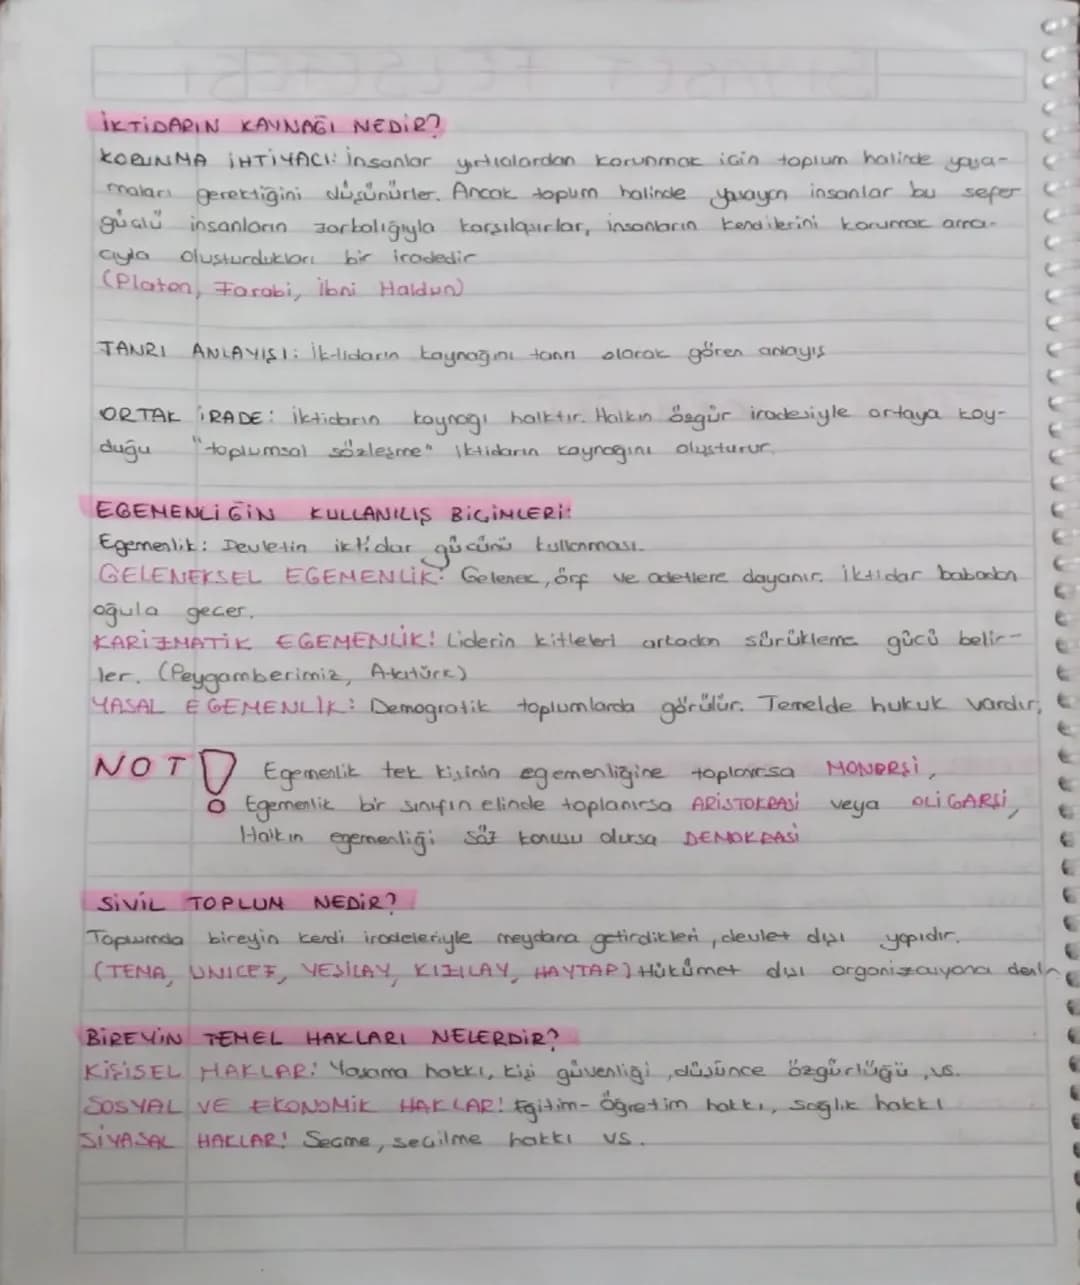 İKTİDARIN KAYNAĞI NEDİR?
KORUNMA İHTİYACI: İnsanlar yırtıcılardan korunmak için toplum halinde yaşa-
maları gerektiğini düşünürler. Ancak toplum halinde yaşayan insanlar bu sefer
güçlü insanların zorbalığıyla karşılaşırlar, insanların kendilerini korumak ama-
cıyla oluşturdukları bir iradedir
(Platon, Farabi, İbni Haldun)
TANRI ANLAYIŞI: İktidarın kaynağını tanrı olarak gören anlayış
ORTAK İRADE: İktidarın kaynağı halktır. Halkın özgür iradesiyle ortaya koy-
duğu "toplumsal sözleşme" iktidarın kaynağını oluşturur.
EGEMENLİĞİN KULLANILIŞ BİÇİMLERİ:
Egemenlik: Devletin iktidar gücünü kullanması.
GELENEKSEL EGEMENLİK: Gelenek, örf ve adetlere dayanır. İktidar babadan
oğula geçer.
KARİZMATİK EGEMENLİK: Liderin kitleleri arkadan sürükleme gücü belir-
ler. (Peygamberimiz, Atatürk)
YASAL EGEMENLİK: Demogratik toplumlarda görülür. Temelde hukuk vardır.
NOT! Egemenlik tek kişinin egemenliğine toplanırsa MONARŞİ,
Egemenlik bir sınıfın elinde toplanırsa ARİSTOKRASİ veya OLİGARŞİ,
Halkın egemenliği söz konusu olursa DEMOKRASİ
SİVİL TOPLUM NEDİR?
Toplumda bireyin kendi iradeleriyle meydana getirdikleri, devlet dışı yapıdır.
(TEMA, UNICEF, YEŞİLAY, KIZILAY, HAYTAP) Hükümet dışı organizasyona denir
BİREYİN TEMEL HAKLARI NELERDİR?
KİŞİSEL HAKLAR: Yaşama hakkı, kişi güvenliği, düşünce özgürlüğü, vs.
SOSYAL VE EKONOMİK HAKLAR: Eğitim-öğretim hakkı, sağlık hakkı
SİYASAL HAKLAR: Seçme, seçilme hakkı vs.